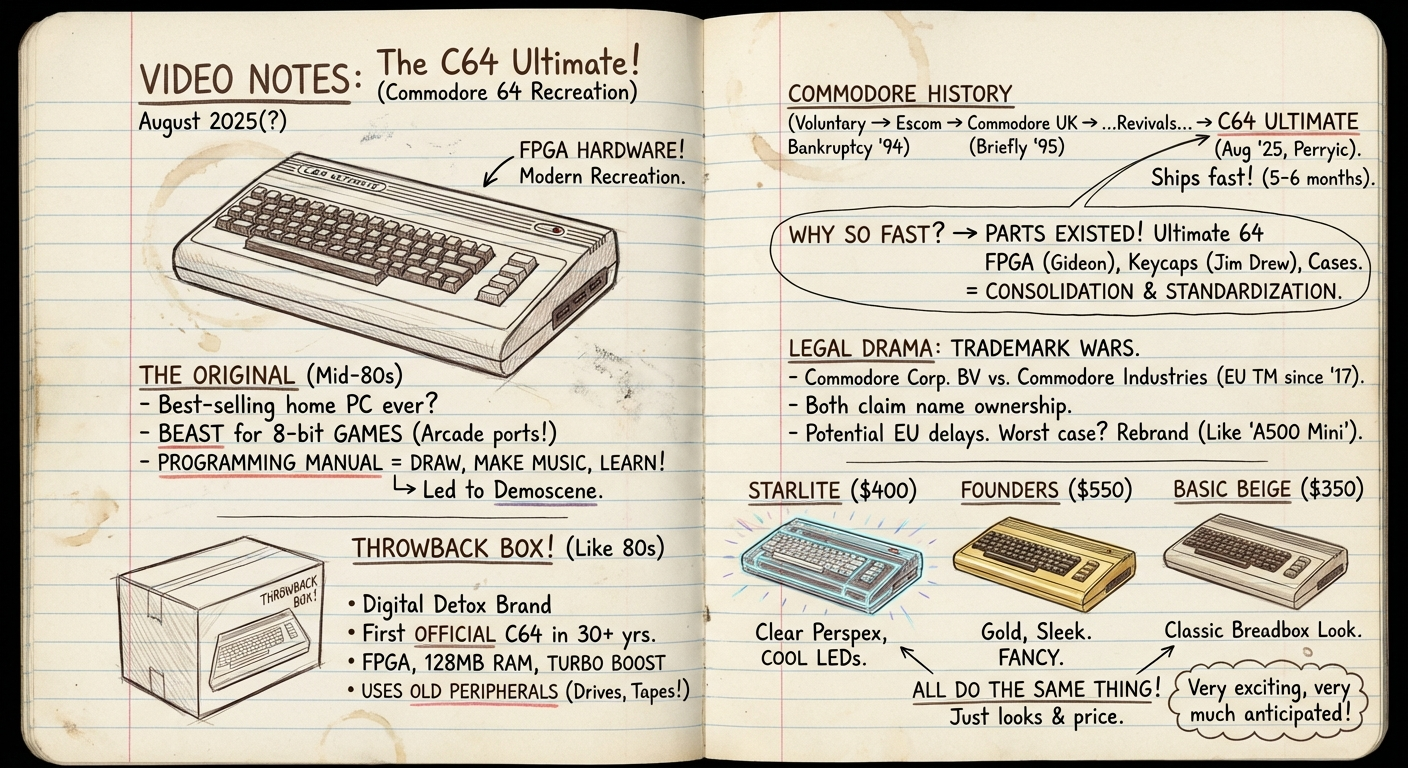 VIDEO NOTES: The C64 Ultimate!
(Commodore 64 Recreation)
August 2025(?)
FPGA HARDWARE!
Modern Recreation.
THE ORIGINAL (Mid-80s)
- Best-selling home PC ever?
- BEAST for 8-bit GAMES (Arcade ports!)
- PROGRAMMING MANUAL = DRAW, MAKE MUSIC, LEARN!
↳ Led to Demoscene.
THROWBACK BOX! (Like 80s)
THROWBACK
BOX!
• Digital Detox Brand
• First OFFICIAL C64 in 30+ yrs.
• FPGA, 128MB RAM, TURBO BOOST
• USES OLD PERIPHERALS (Drives, Tapes!)
COMMODORE HISTORY
(Voluntary → Escom → Commodore UK → ...Revivals... → C64 ULTIMATE
Bankruptcy '94) (Briefly '95) (Aug '25, Perryic).
Ships fast! (5-6 months).
WHY SO FAST? → PARTS EXISTED! Ultimate 64
FPGA (Gideon), Keycaps (Jim Drew), Cases.
= CONSOLIDATION & STANDARDIZATION.
LEGAL DRAMA: TRADEMARK WARS.
- Commodore Corp. BV vs. Commodore Industries (EU TM since '17).
- Both claim name ownership.
- Potential EU delays. Worst case? Rebrand (Like 'A500 Mini').
STARLITE ($400) FOUNDERS ($550) BASIC BEIGE ($350)
Clear Perspex,
COOL LEDs.
Gold, Sleek.
FANCY.
Classic Breadbox Look.
ALL DO THE SAME THING!
Just looks & price.
Very exciting, very
much anticipated!